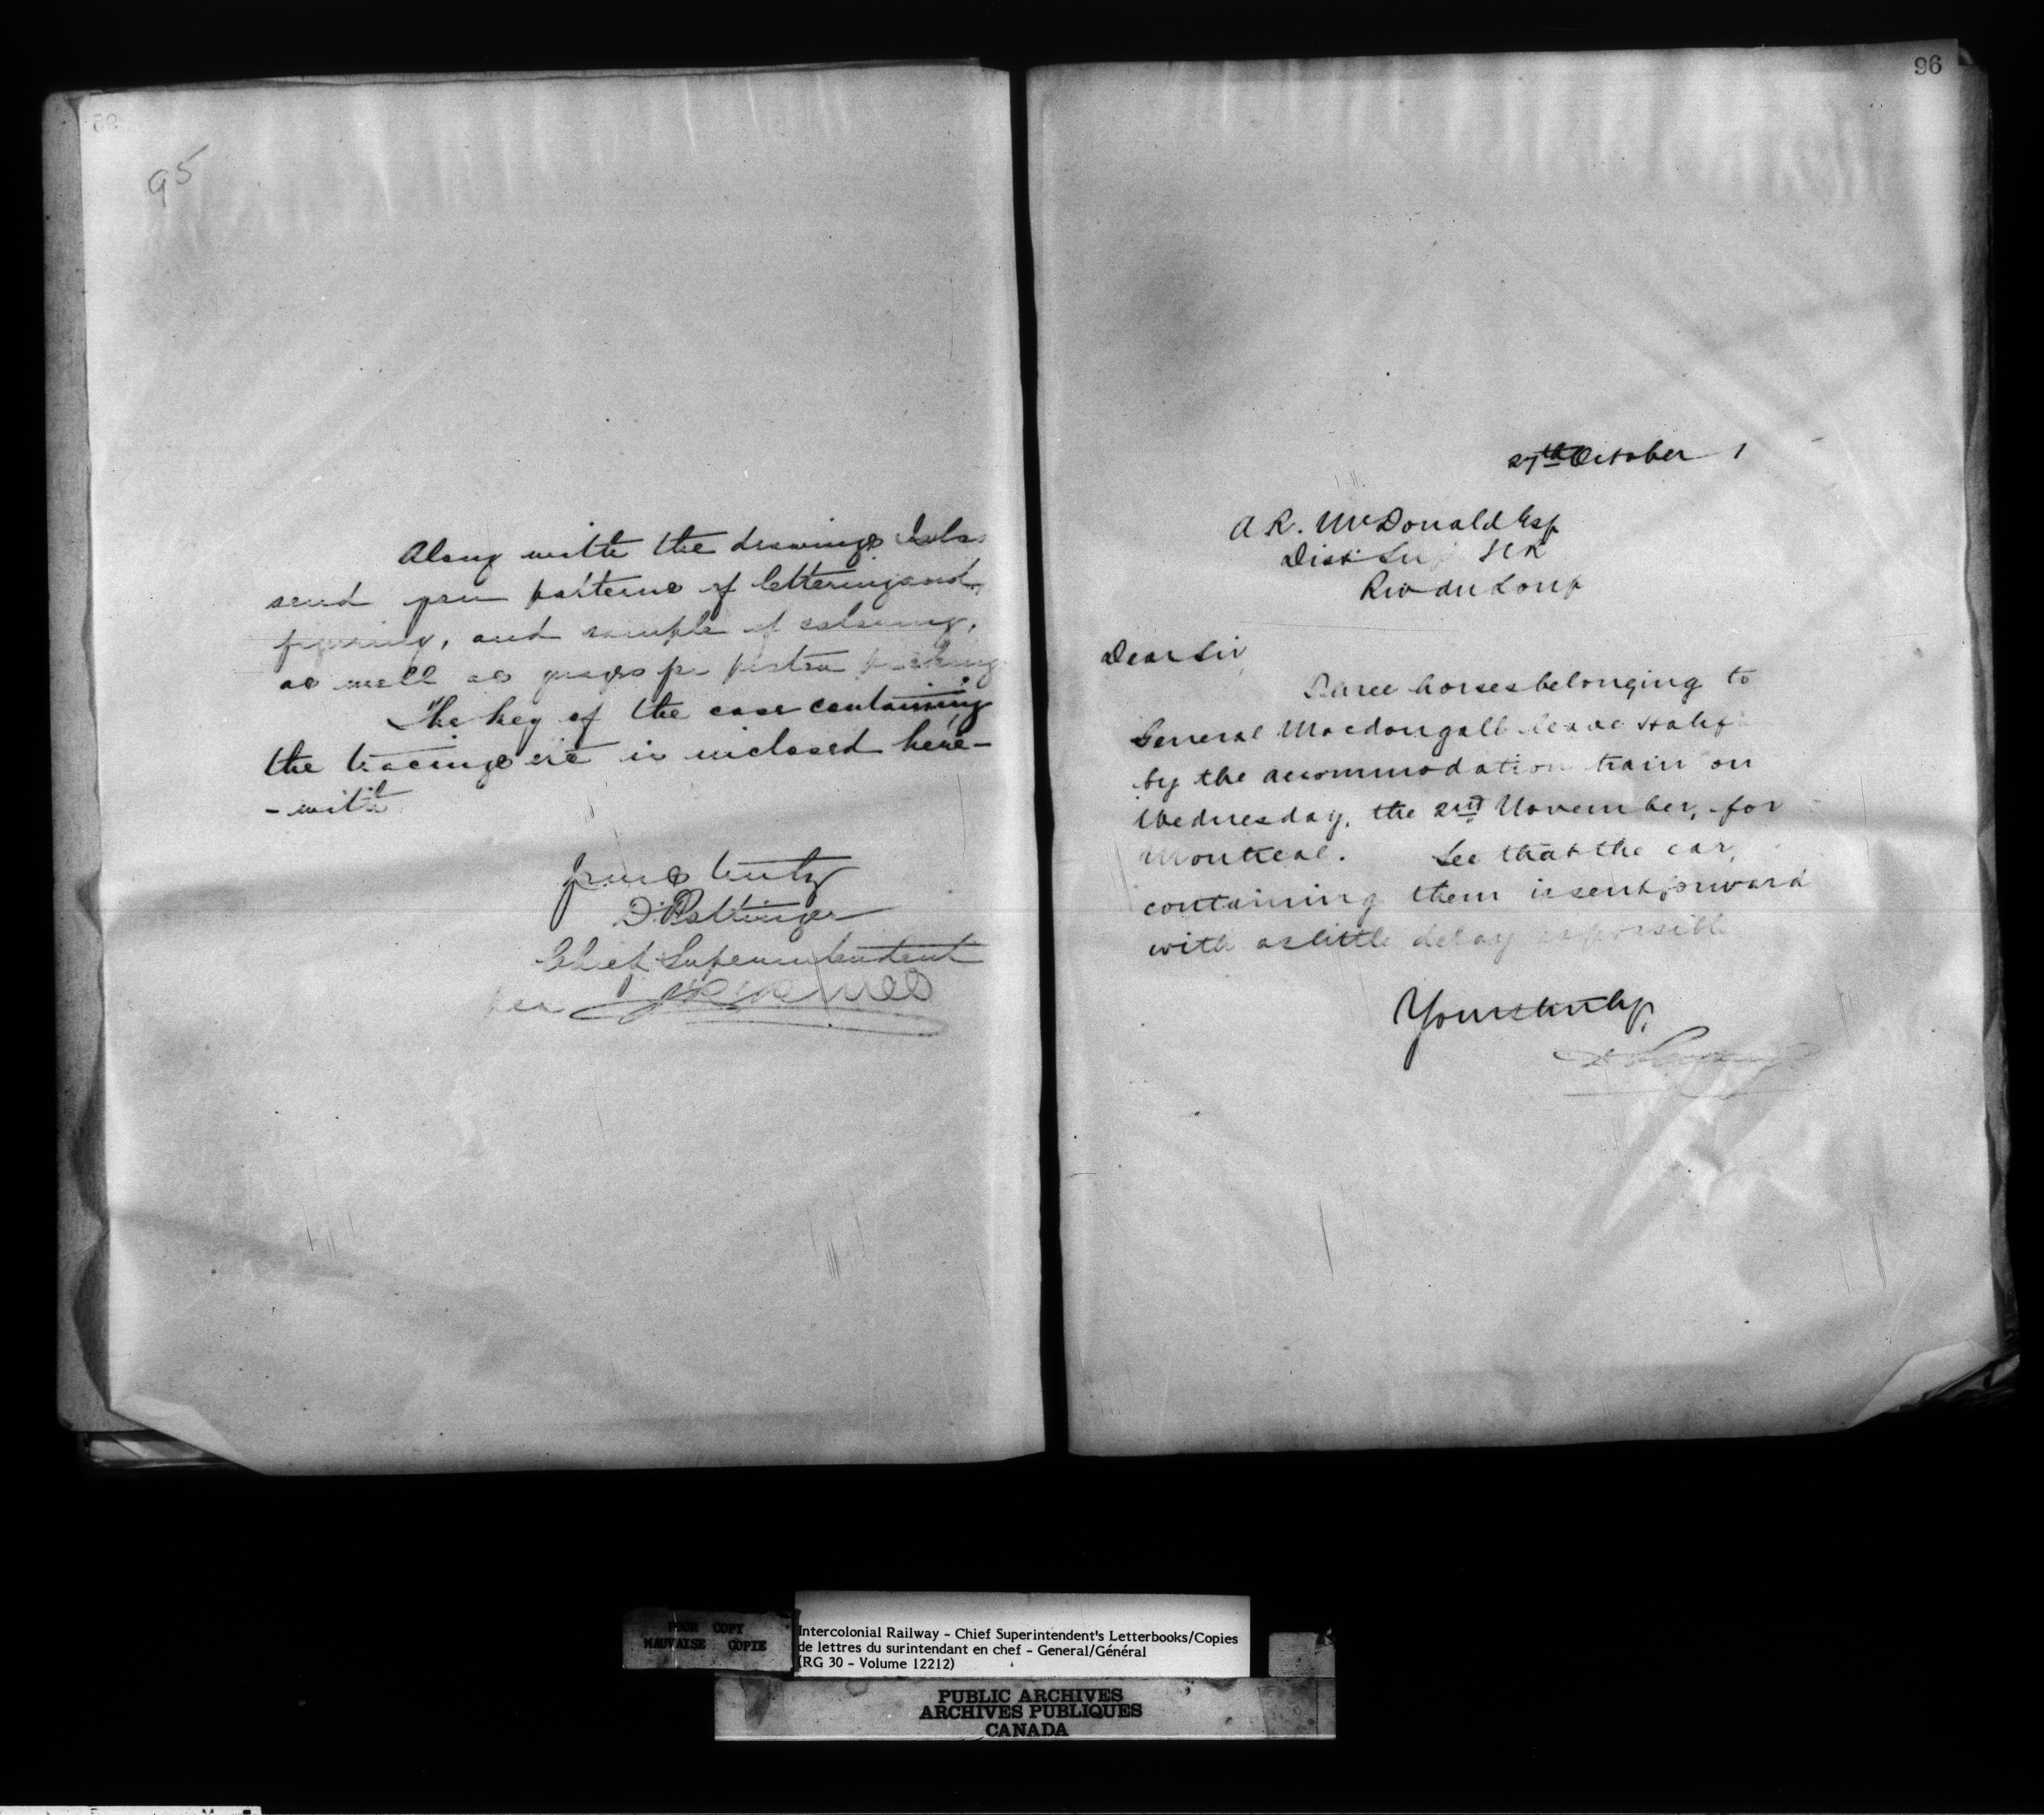 95
Along with the drawings I also
send you patterns of lettering and
figuring, and sample of colouring,
as well as gauges for piston packing
The key of the case containing
the tracings etc is inclosed here-
-with
Yours truly
D Pottinger
Chief Superintendent
per
96
27th October 1
A R. McDonald Esq
Dist Sup ICR
Riv du Loup
Dear Sir
Three horses belonging to
General Macdougall leave Halifx
by the accommodation train on
Wednesday, the 2nd November, for
Montreal. See that the car,
containing them is sent forward
with as little delay as possible
Yours truly,
D Pottinger
POOR COPY
MAUVAISE COPIE
Intercolonial Railway - Chief Superintendent's Letterbooks/Copies
de lettres du surintendant en chef - General/Général
(RG 30 - Volume 12212)
PUBLIC ARCHIVES
ARCHIVES PUBLIQUES
CANADA